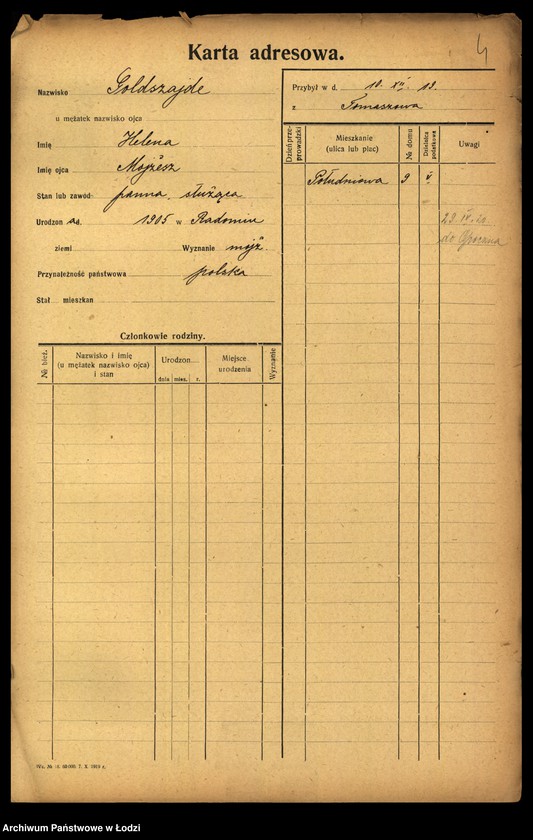 4
Karta adresowa.
Nazwisko Goldszajde
u mężatek nazwisko ojca
Imię Helena
Imię ojca Mojżesz
Stan lub zawód: panna, służąca
Urodzon a d. 1905 w Radomiu
ziemi Wyznanie mojż.
Przynależność państwowa polska
Stał mieszkan
Przybył w d. 18. XII. 19.
z Tomaszowa
Dzień przeprowadzki
Mieszkanie (ulica lub plac)
№ domu
Dzielnica podatkowa
Uwagi
Południowa 9 V
29.IV.20
do Opoczna
Członkowie rodziny.
№ bież.
Nazwisko i imię
(u mężatek nazwisko ojca)
i stan
Urodzon
dnia mies. r.
Miejsce urodzenia
Wyznanie
7. X. 1919 r.
Archiwum Państwowe w Łodzi